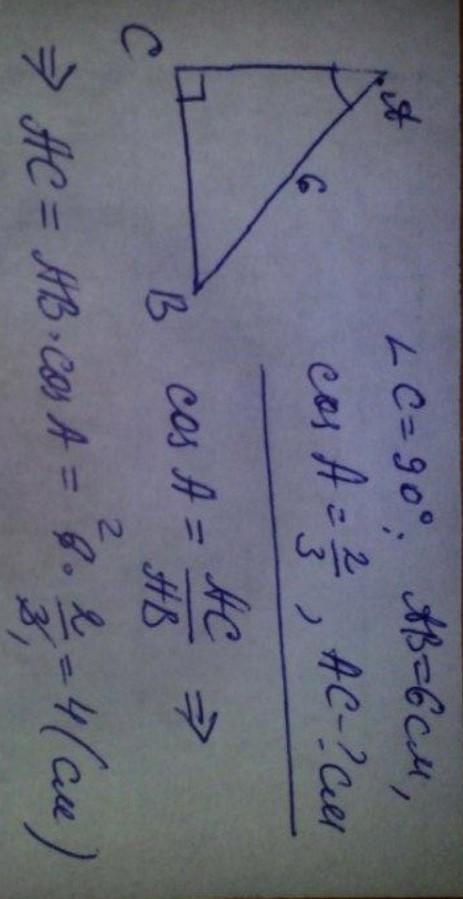 A
6
C
B
∠C=90°; AB=6см,
cos A = 2/3, AC-? см
cos A = AC/AB ⇒
⇒ AC = AB·cos A = 6² · 2/3₁ = 4 (см)